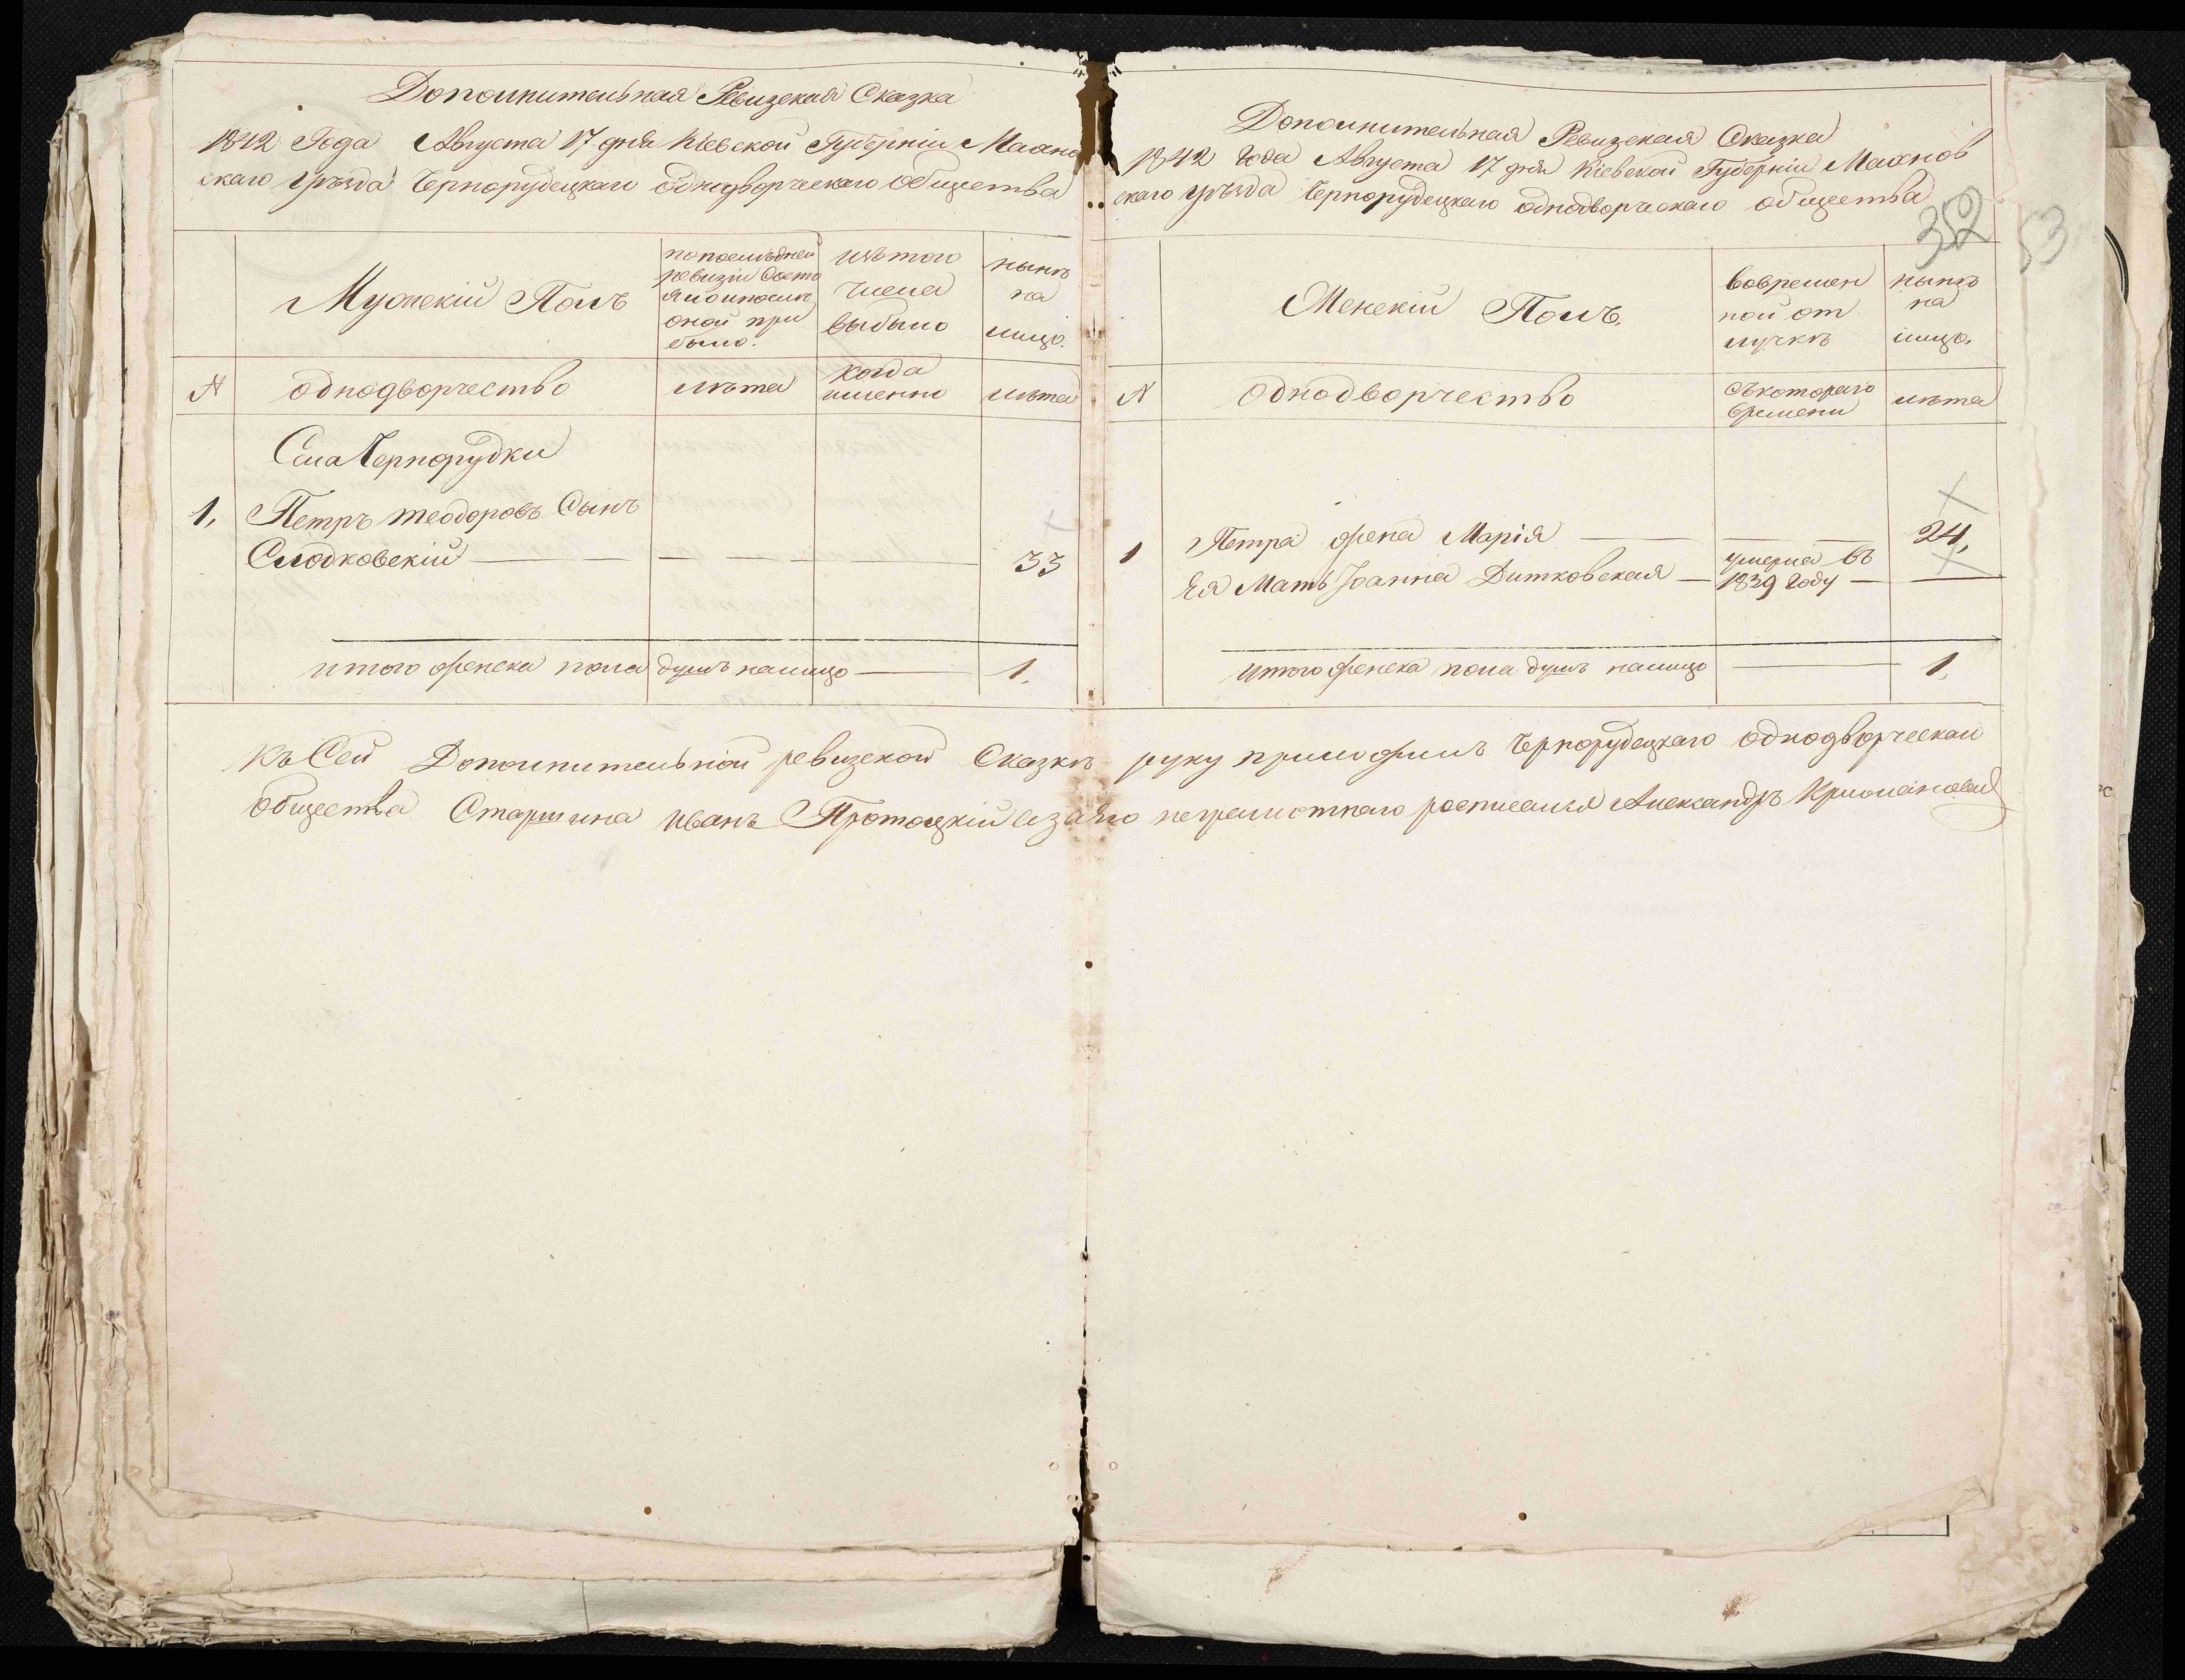 Дополнительная Ревизская Сказка
1842 Года Августа 17 дня Кіевской Губерніи Махно
скаго уѣзда Чернорудецкаго однодворческаго общества
Мужескій Полъ
попослѣдней
ревизіи Состо
яло и послѣ
оной при
было.
изъ того
числа
выбыло
нынѣ
на
лицо.
№
однодворчество
лѣта
когда
именно
лѣта
Села Чернорудки
1, Петръ теодоровъ Сынъ
Слодковскій 33
итого женска пола душъ налицо 1.
Дополнительная Ревизская Сказка
1842 года Августа 17 дня Кіевской Губерніи Махнов
скаго уѣзда Чернорудецкаго однодворческаго общества
352
53
Женскій Полъ,
вовремен
ной от
лучкѣ
нынѣ
на
лицо,
№
Однодворчество
съкотораго
времени
лѣта
1 Петра жена Марія 24,
Ея Мать Іоанна Дитковская
умерла въ
1839 году
итого женска пола душъ налицо 1,
Къ Сей Дополнительной ревизской Сказкѣ руку приложилъ Чернорудецкаго однодворческаго
общества Старшина Иванъ Протоцкій азаего неграмотнаго росписался Александръ